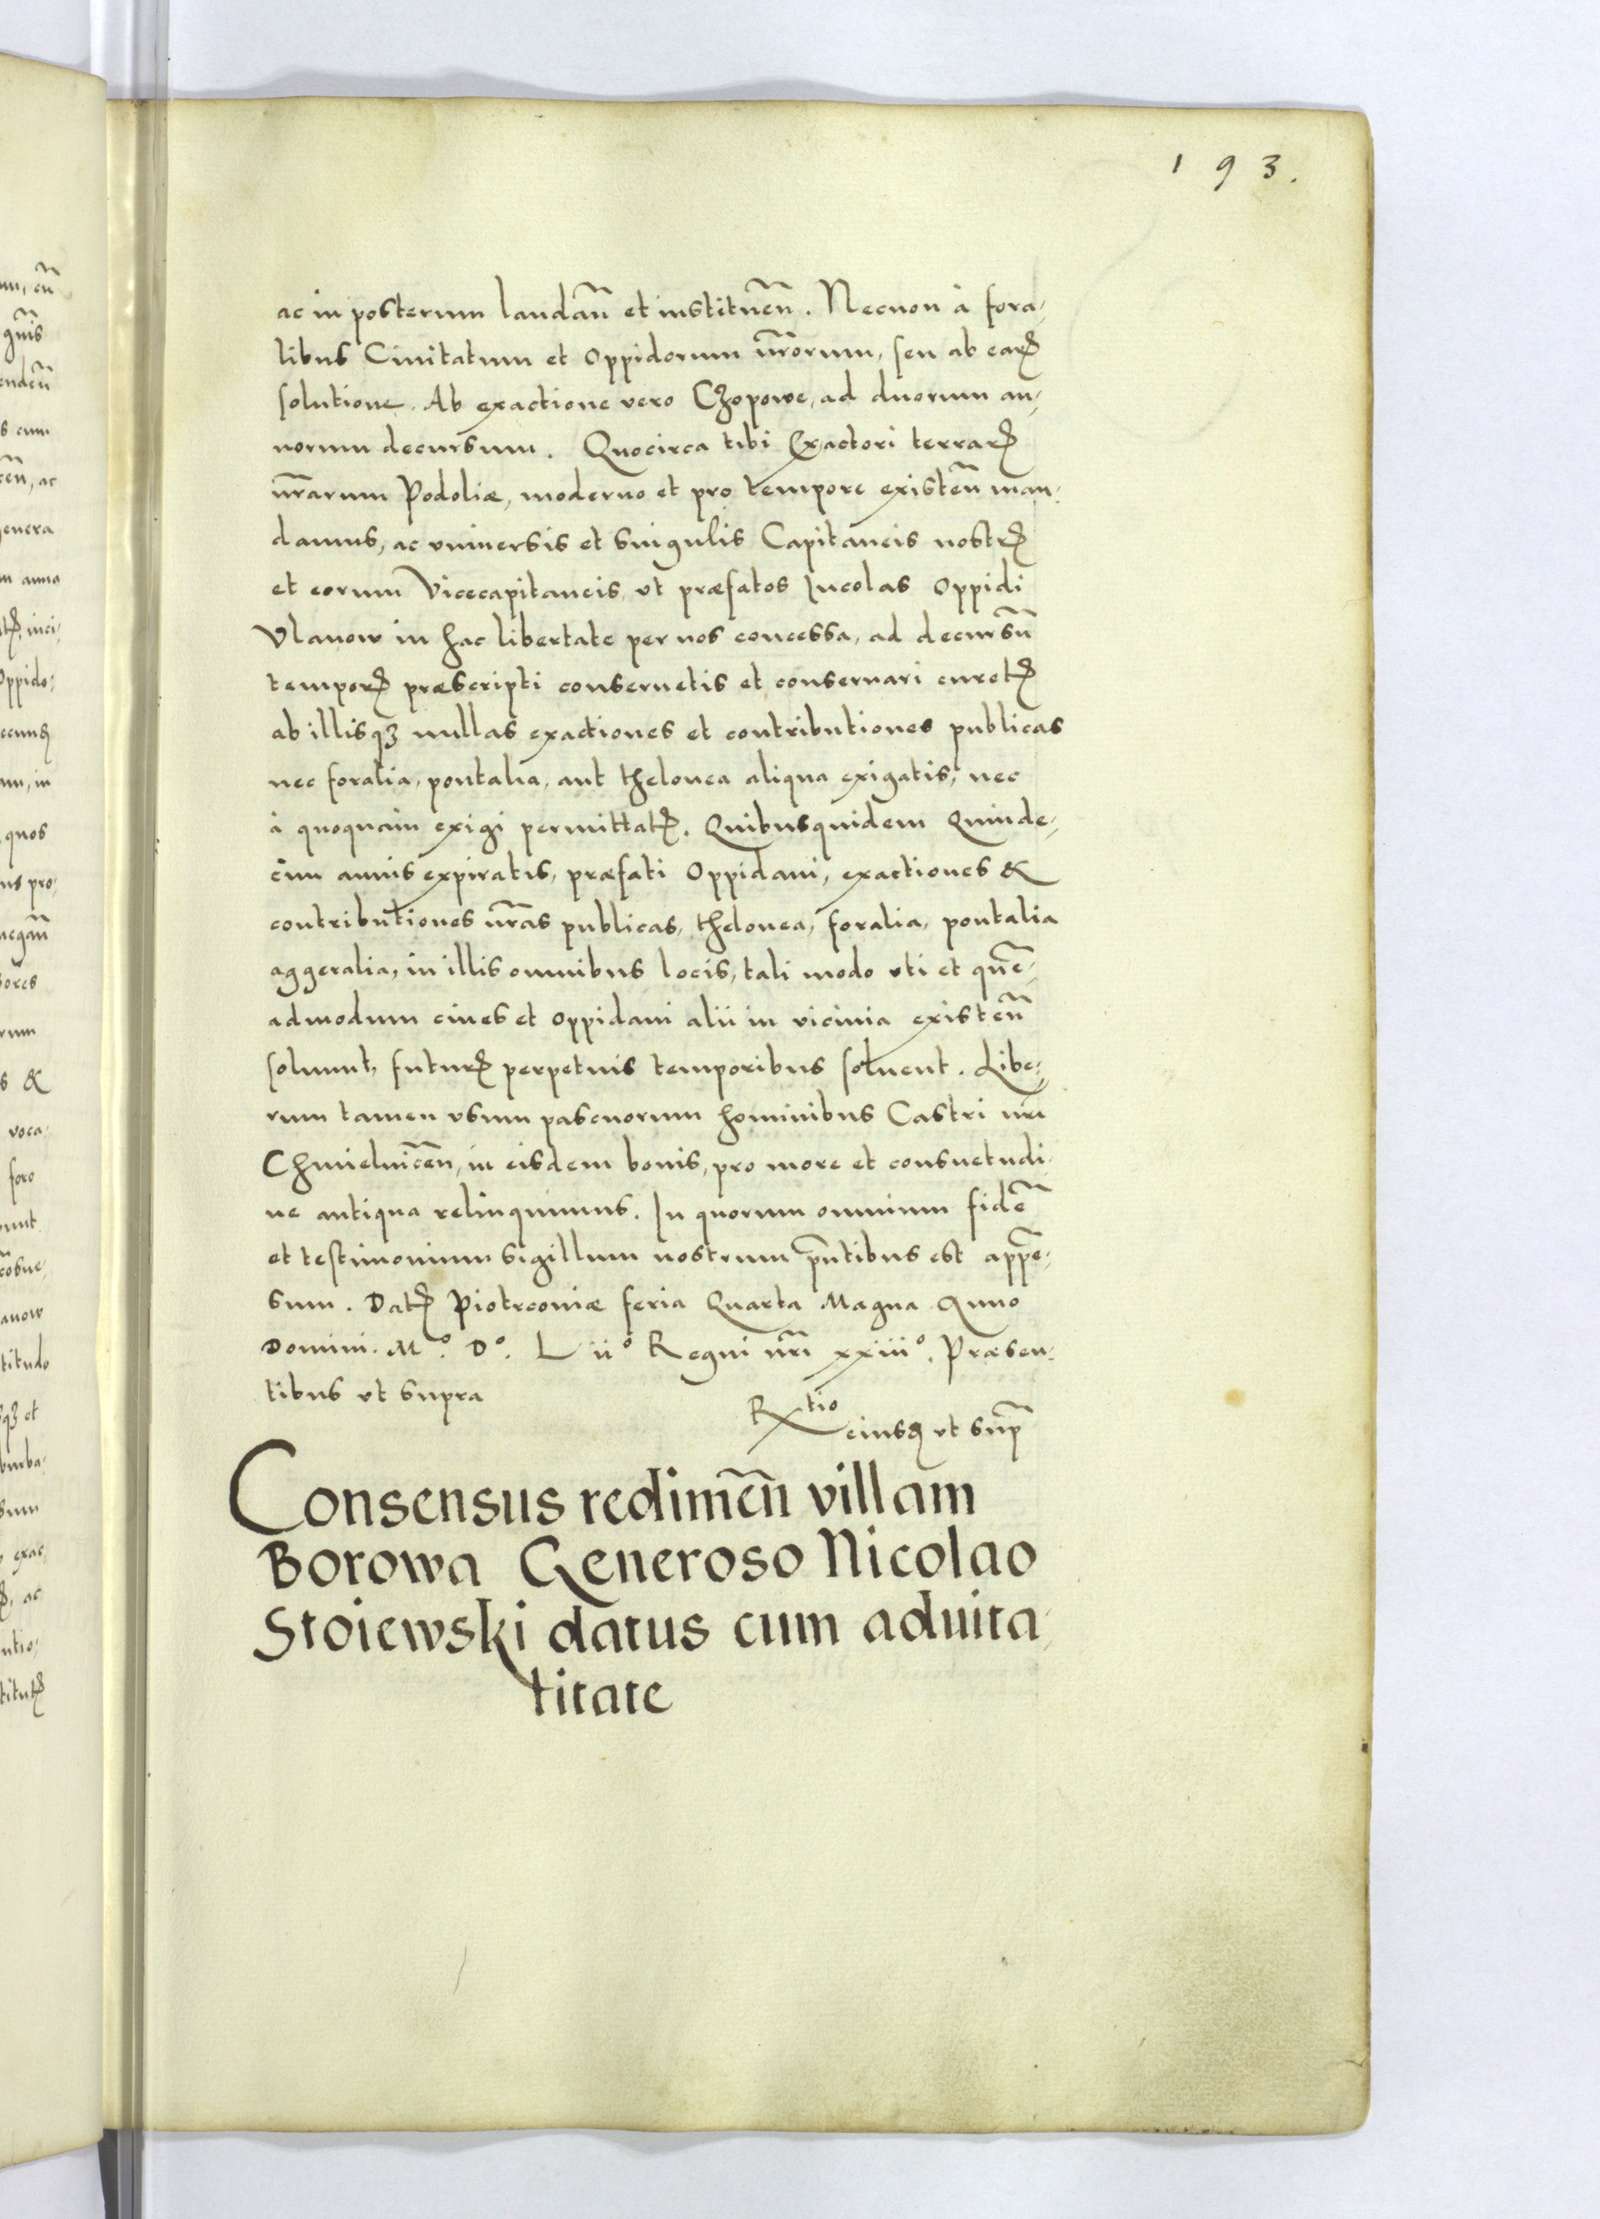 193.
ac in posterum laudañ et instituẽn. Necnon à fora-
libus Ciuitatum et Oppidorum ñrorum, seu ab earꝝ
solutione. Ab exactione vero Czopowe, ad duorum an-
norum decursum. Quocirca tibi Exactori terrarꝝ
ñrarum Podoliæ, moderno et pro tempore existeñ man-
damus, ac vniuersis et singulis Capitaneis nostrꝭ
et eorum Vicecapitaneis, vt præfatos Incolas Oppidi
Vlanow in hac libertate per nos concessa, ad decursũ
temporꝭ præscripti conseruetis et conseruari curetꝭ
ab illisqꝫ nullas exactiones et contributiones publicas
nec foralia, pontalia, aut thelonea aliqua exigatis, nec
à quoquam exigi permittatꝭ. Quibusquidem Quinde-
cim annis expiratis, præfati Oppidani, exactiones &
contributiones ñras publicas, thelonea, foralia, pontalia
aggeralia, in illis omnibus locis, tali modo vti et quẽ-
admodum ciues et Oppidani alii in vicinia existeñ
soluunt, futurꝭ perpetuis temporibus soluent. Libe-
rum tamen vsum pascuorum hominibus Castri nri
Chmielniceñ, in eisdem bonis, pro more et consuetudi-
ne antiqua relinquimus. In quorum omnium fidẽ
et testimonium sigillum nostrum pñtibus est appẽ-
sum. Datꝭ Piotrconiæ feria Quarta Magna Anno
Domini. Mº. Dº. L iiº Regni ñri xxiiiº. Præsen-
tibus vt supra
Rtio eiusꝫ vt sup̃
Consensus redimẽn villam
Borowa Generoso Nicolao
Stoiewski datus cum aduita-
titate